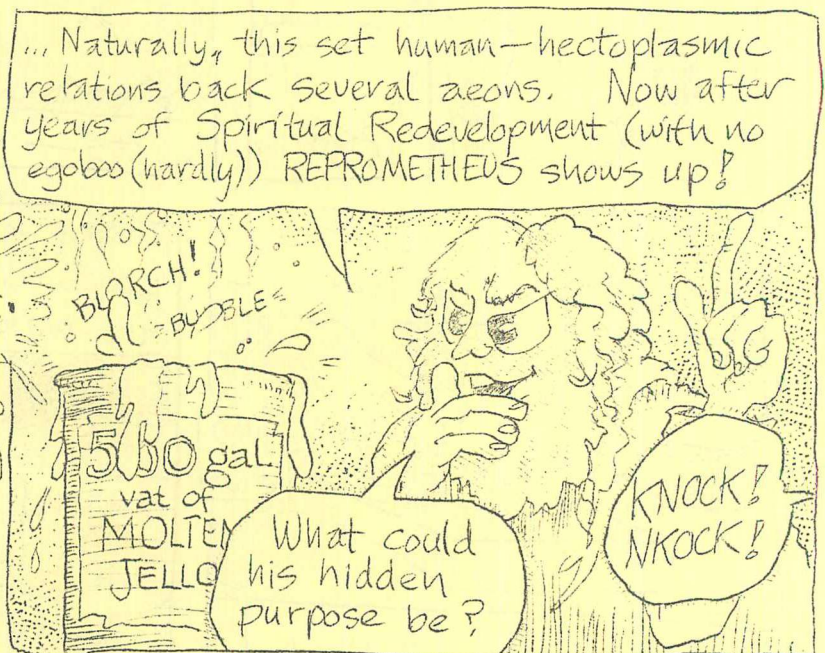 ... Naturally, this set human—hectoplasmic
relations back several aeons. Now after
years of Spiritual Redevelopment (with no
egoboo (hardly)) REPROMETHEUS shows up!
BLORCH!
BUBBLE
500 gal.
vat of
MOLTEN
JELLO
What could
his hidden
purpose be?
KNOCK!
NKOCK!